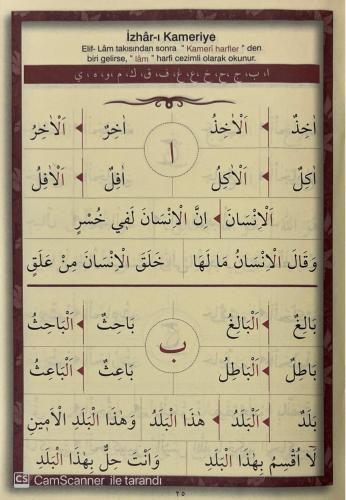 İzhâr-ı Kameriye
Elif- Lâm takısından sonra " Kamerî harfler " den
biri gelirse, " lâm " harfi cezimli olarak okunur.
ا ، ب ، ج ، ح ، خ ، ع ، غ ، ف ، ق ، ك ، م ، و ، ه ، ي
اٰخِذٌ اَلْاٰخِذُ اٰخِرٌ اَلْاٰخِرُ
ا
اٰكِلٌ اَلْاٰكِلُ اٰفِلٌ اَلْاٰفِلُ
اَلْاِنْسَانَ اِنَّ الْاِنْسَانَ لَفٖي خُسْرٍ
وَقَالَ الْاِنْسَانُ مَا لَهَا خَلَقَ الْاِنْسَانَ مِنْ عَلَقٍ
بَالِغٌ اَلْبَالِغُ بَاحِثٌ اَلْبَاحِثُ
ب
بَاطِلٌ اَلْبَاطِلُ بَاعِثٌ اَلْبَاعِثُ
بَلَدٌ اَلْبَلَدُ هٰذَا الْبَلَدُ وَهٰذَا الْبَلَدِ الْاَمٖينِ
لَٓا اُقْسِمُ بِهٰذَا الْبَلَدِ وَاَنْتَ حِلٌّ بِهٰذَا الْبَلَدِ
CS CamScanner ile tarandı
٢٥